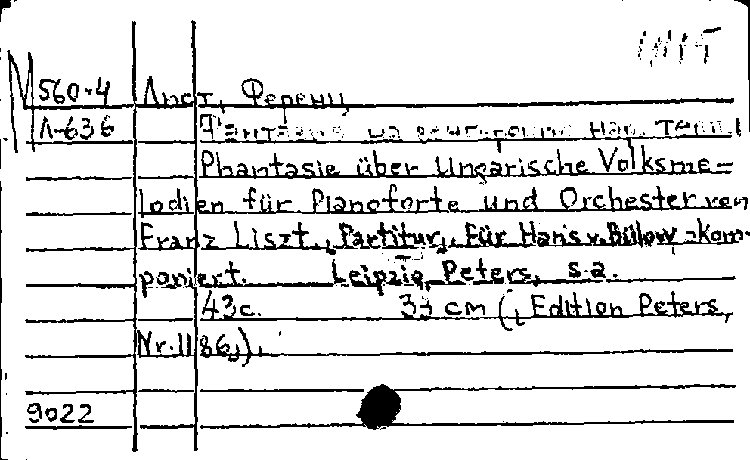 М560-4 Лист, Ференц
Л-636 Фантазия на венгерские нар. темы
Phantasie über Ungarische Volksme-
lodien für Pianoforte und Orchester von
Franz Liszt., Partitur,. Für Hans v. Bülow -kom-
poniert. Leipzig, Peters, s.a.
43с. 33 cm (, Edition Peters,
Nr.1186,).
9022